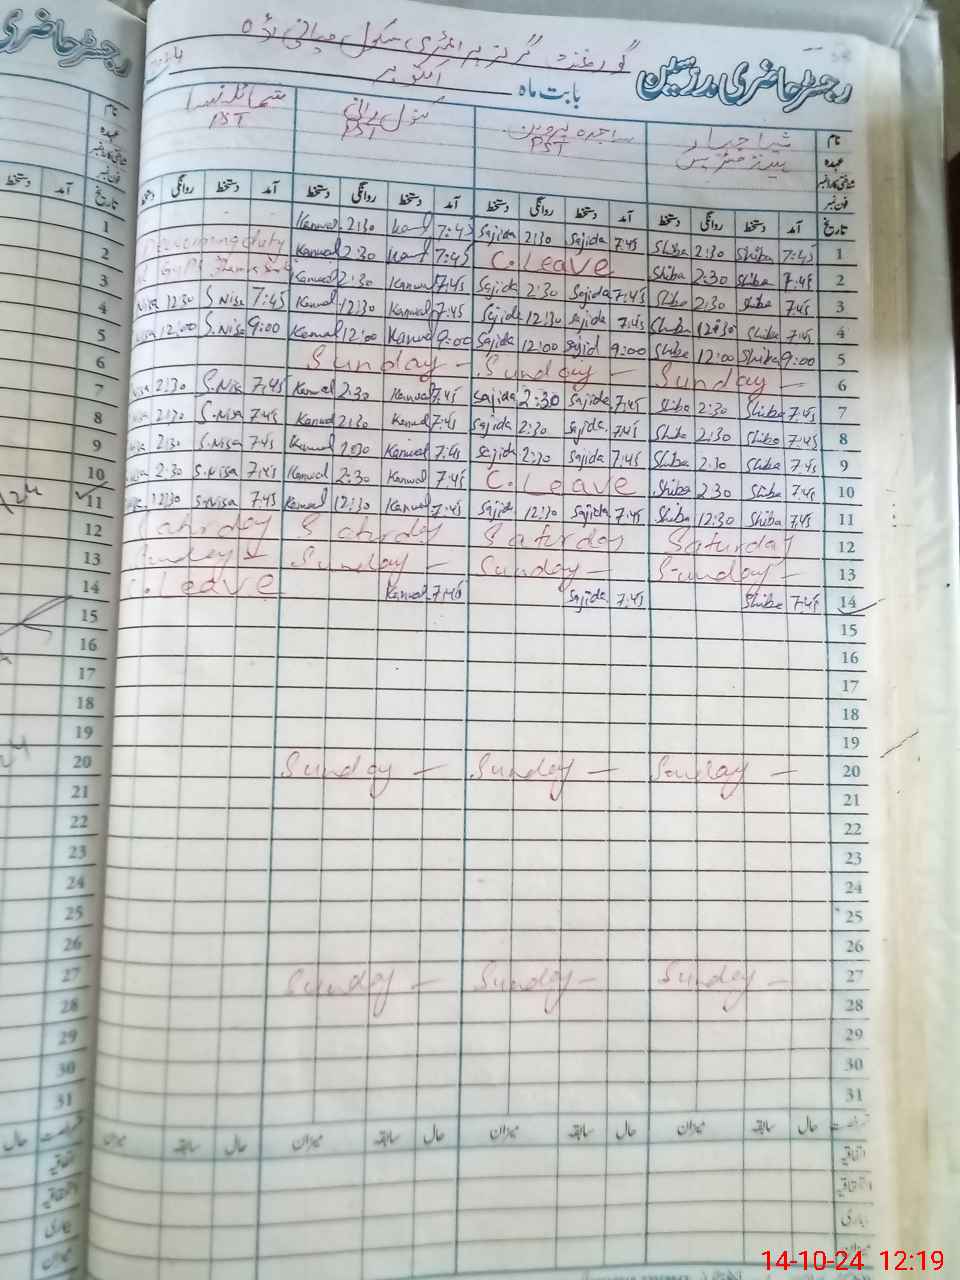 رجسٹر حاضری مدرسین
بابت ماہ اکتوبر
گورنمنٹ گرلز پرائمری سکول
نام
عہدہ
شناختی کارڈ نمبر
فون نمبر
ساجدہ پروین
PST
کنول رانی
PST
PST
تاریخ آمد دستخط روانگی دستخط آمد دستخط روانگی دستخط آمد دستخط روانگی دستخط آمد دستخط روانگی
Kanwal 2:30 7:45 Sajida 2:30 Sajida 7:45 Shiba 2:30 Shiba 7:45 1
duty Kanwal 2:30 7:45 C. Leave Shiba 2:30 Shiba 7:45 2
Kanwal 2:30 Kanwal 7:45 Sajida 2:30 Sajida 7:45 Shiba 2:30 Shiba 7:45 3
Nisa 12:30 S.Nisa 7:45 Kanwal 12:30 Kanwal 7:45 Sajida 12:30 Sajida 7:45 Shiba 12:30 Shiba 7:45 4
Nisa 12:00 S.Nisa 9:00 Kanwal 12:00 Kanwal 9:00 Sajida 12:00 Sajid 9:00 Shiba 12:00 Shiba 9:00 5
Sunday – Sunday – Sunday – 6
Nisa 2:30 S.Nisa 7:45 Kanwal 2:30 Kanwal 7:45 Sajida 2:30 Sajida 7:45 Shiba 2:30 Shiba 7:45 7
2:30 S.Nisa 7:45 Kanwal 2:30 Kanwal 7:45 Sajida 2:30 Sajida 7:45 Shiba 2:30 Shiba 7:45 8
2:30 S.Nisa 7:45 Kanwal 2:30 Kanwal 7:45 Sajida 2:30 Sajida 7:45 Shiba 2:30 Shiba 7:45 9
2:30 S.Nisa 7:45 Kanwal 2:30 Kanwal 7:45 C. Leave Shiba 2:30 Shiba 7:45 10
12:30 S.Nisa 7:45 Kanwal 12:30 Kanwal 7:45 Sajida 12:30 Sajida 7:45 Shiba 12:30 Shiba 7:45 11
Saturday Saturday Saturday Saturday 12
Sunday – Sunday – Sunday – Sunday – 13
C. Leave Kanwal 7:45 Sajida 7:45 Shiba 7:45 14
15
16
17
18
19
Sunday – Sunday – Sunday – 20
21
22
23
24
25
26
Sunday – Sunday – Sunday – 27
28
29
30
31
حال سابقہ میزان حال سابقہ میزان حال سابقہ میزان حال سابقہ میزان
اتفاقیہ
بیماری
میزان
رجسٹر حاضری
نام
عہدہ
شناختی کارڈ نمبر
فون نمبر
تاریخ آمد دستخط
1
2
3
4
5
6
7
8
9
10
11
12
13
14
15
16
17
18
19
20
21
22
23
24
25
26
27
28
29
30
31
حال
اتفاقیہ
بیماری
میزان
14-10-24 12:19